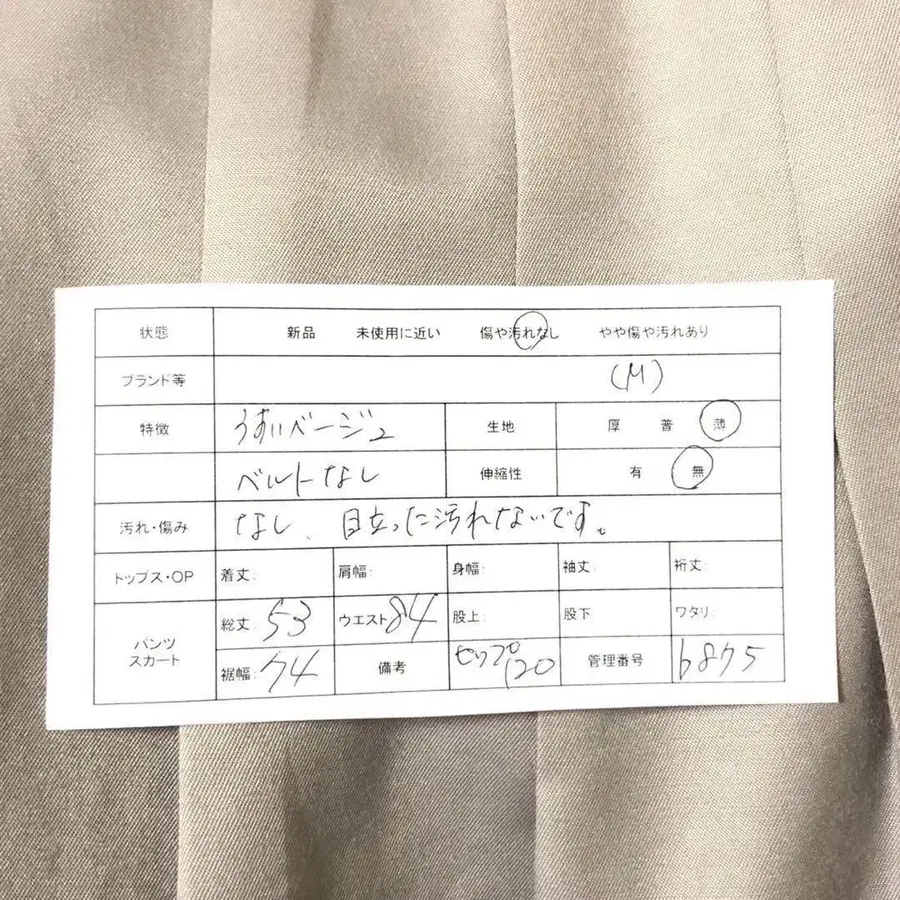 状態 新品 未使用に近い 傷や汚れなし やや傷や汚れあり
ブランド等 (M)
特徴 うすいベージュ 生地 厚 普 薄
ベルトなし 伸縮性 有 無
汚れ・傷み なし、目立った汚れないです。
トップス・OP 着丈: 肩幅: 身幅: 袖丈: 裄丈:
パンツ スカート
総丈: 53 ウエスト 84 股上: 股下 ワタリ:
裾幅: 74 備考 ヒップ 120 管理番号 6875